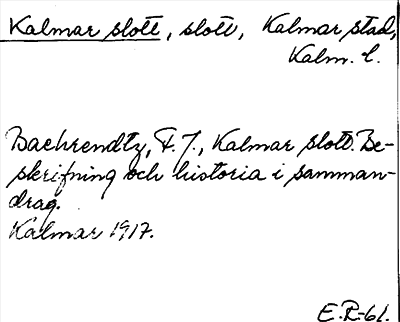 Kalmar slott, slott, Kalmar stad,
Kalm. l.
Baehrendtz, F. J., Kalmar slott. Be-
skrifning och historia i samman-
drag.
Kalmar 1917.
E.R-61.